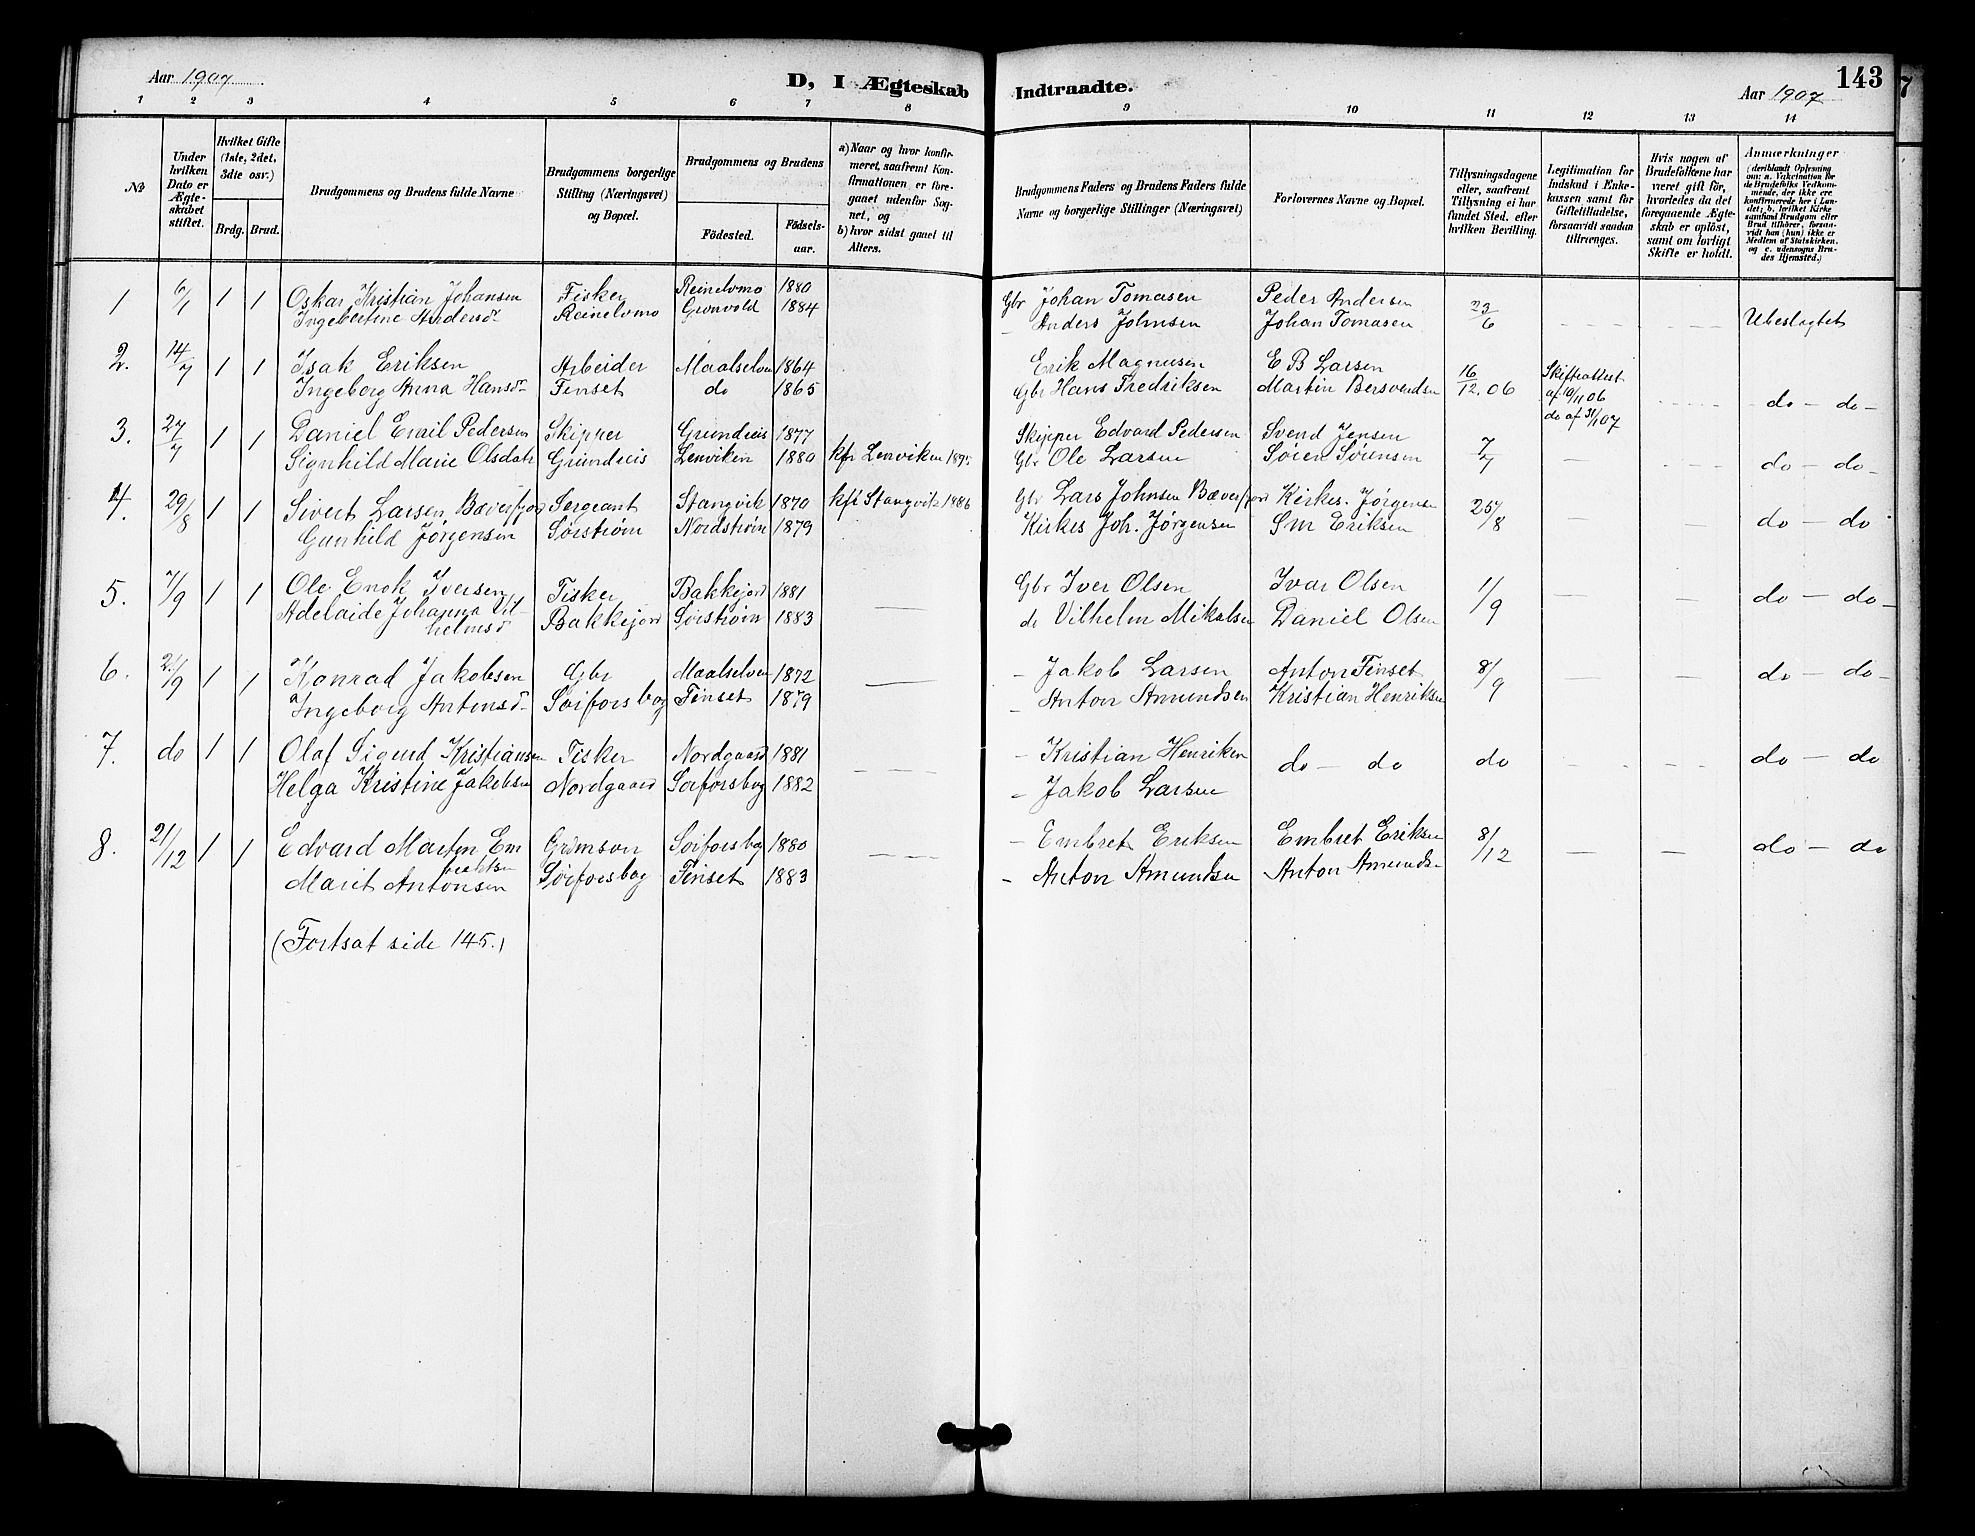 Aar 1907
D, I Ægteskab Indtraadte.
Aar 1907
143
1 2 3 4 5 6 7 8 9 10 11 12 13 14
№
Under hvilken Dato er Ægteskabet stiftet.
Hvilket Gifte (1ste, 2det, 3die osv.)
Brdg. Brud.
Brudgommens og Brudens fulde Navne
Brudgommens borgerlige Stilling (Næringsvei) og Bopæl.
Brudgommens og Brudens
Födested.
Födselsaar.
a) Naar og hvor konfirmeret, saafremt Konfirmationen er foregaaet udenfor Sognet, og
b) hvor sidst gaaet til Alters.
Brudgommens Faders og Brudens Faders fulde Navne og borgerlige Stillinger (Næringsvei)
Forlovernes Navne og Bopæl.
Tillysningsdagene eller, saafremt Tillysning ei har fundet Sted, efter hvilken Bevilling.
Legitimation for Indskud i Enkekassen samt for Giftetilladelse, forsaavidt saadan tiltrænges.
Hvis nogen af Brudefolkene har været gift för, hvorledes da det foregaaende Ægteskab er oplöst, samt om lovligt Skifte er holdt.
Anmærkninger
(deriblandt Oplysning om: a. Vakcination for de Brudefolks Vedkommende, der ikke ere konfirmerede her i Landet; b. hvilket Kirkesamfund Brudgom eller Brud tilhörer, forsaavidt han (hun) ikke er Medlem af Statskirken, og c. udensogns Brudes Hjemsted.)
1 6/7 1 1 Oskar Kristian Johansen Fisker Reinelvmo 1880 Gbr Johan Tomasen Peder Andersen 23/6 Ubeslægtet
Ingebertine Andersd. Reinelvmo Grønvold 1884 - Anders Johnsen Johan Tomasen
2. 14/7 1 1 Isak Eriksen Arbeider Maalselven 1864 Erik Magnusen E B Larsen 16/12.06 Skifteattest af 19/11 06
Ingeborg Anna Hansd. Finset do 1865 Gbr Hans Fredriksen Martin Bersvendsen do af 31/1 07 do - do -
3. 27/7 1 1 Daniel Emil Pedersen Skipper Grundreis 1877 Skipper Edvard Pedersen Svend Jensen 7/7
Signhild Marie Olsdatr Grundreis Lenviken 1880 kfr Lenviken 1895 Gbr Ole Larsen Søren Sørensen do - do -
4. 29/8 1 1 Sivert Larsen Bæverfjord Sergeant Stangvik 1870 kft Stangvik 1886 Gbr Lars Johnsen Bæverfjord Kirkes. Jørgensen 25/8
Gunhild Jørgensen Sørstrøm Nordstrøm 1879 Kirkes Joh. Jørgensen S M Eriksen do - do
5. 7/9 1 1 Ole Enok Iversen Fisker Bakkejord 1881 Gbr Iver Olsen Ivar Olsen 1/9 do - do -
Adelaide Johanna Vilhelmsd Bakkejord Sørstrøm 1883 do Vilhelm Mikalsen Daniel Olsen
6. 21/9 1 1 Konrad Jakobsen Gbr Maalselven 1872 - Jakob Larsen Anton Finset 8/9 do - do -
Ingeborg Antonsd. Sørforsbog Finset 1879 - Anton Amundsen Kristian Henriksen
7. do 1 1 Olaf Sigurd Kristiansen Fisker Nordgaard 1881 - Kristian Henriksen do - do do do - do
Helga Kristine Jakobsen Nordgaard Sørforsbog 1882 - Jakob Larsen
8. 21/12 1 1 Edvard Martin Em Grdmson Sørforsbog 1880 - Embret Eriksen Embret Eriksen 8/12 do - do
bretsen
Marit Antonsen Sørforsbog Finset 1883 - Anton Amundsen Anton Amunds-
(Fortsat side 145.)